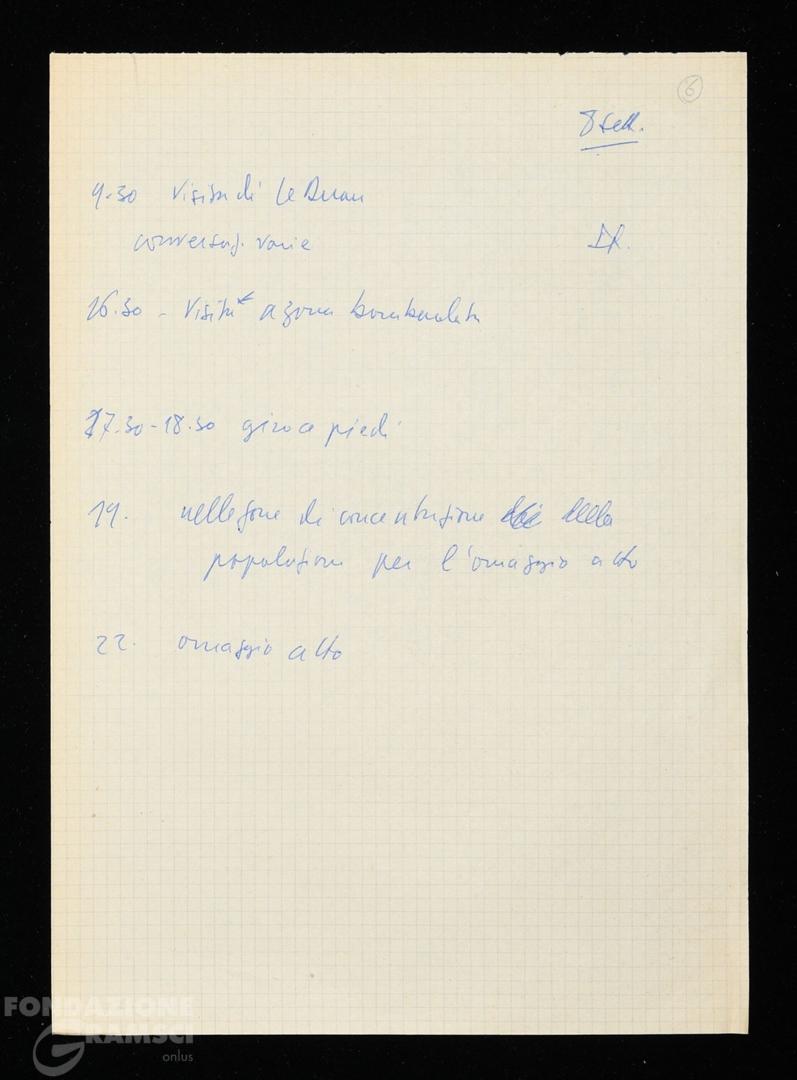 6
8 sett.
9.30 visita di Le Duan
conversaz. varie
16.30 - visita a zona bombardata
17.30-18.30 giro a piedi
19. nelle zone di concentrazione della
popolazione per l'omaggio a Ho
22. omaggio a Ho
FONDAZIONE
GRAMSCI
onlus